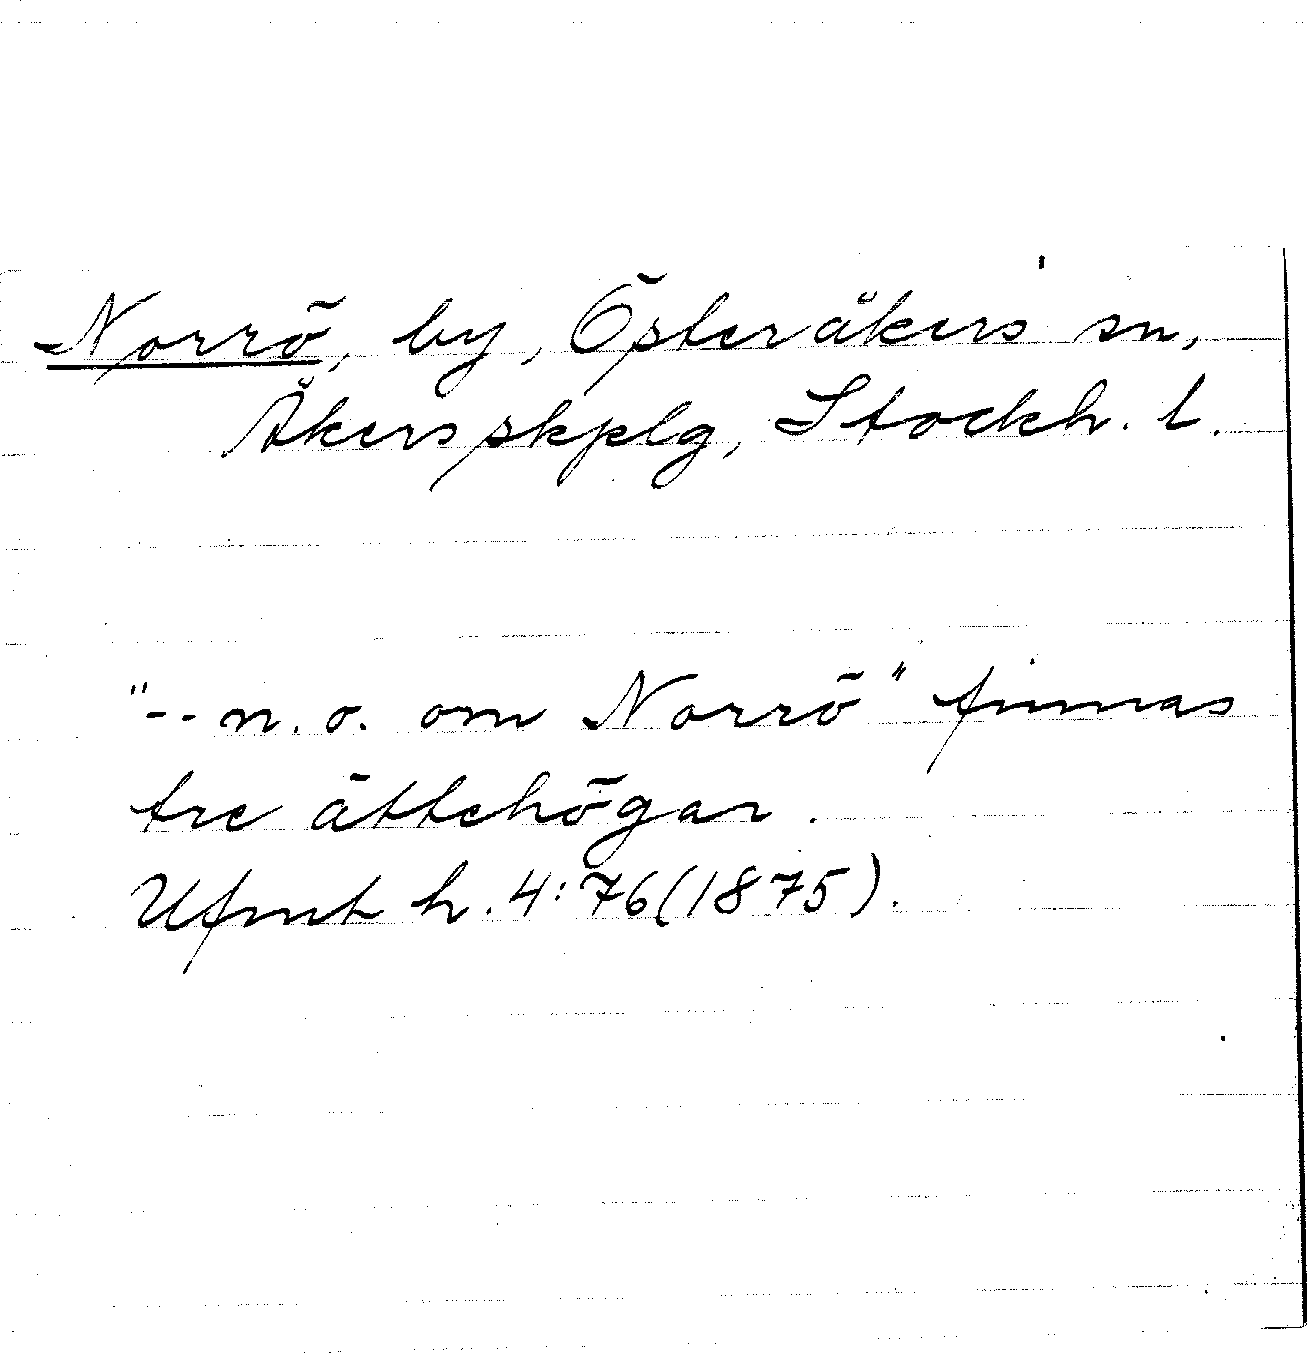 Norrö, by, Österåkers sn,
Åkers skplg, Stockh. l.
"-- n. o. om Norrö" finnas
tre ättehögar.
Ufmt h. 4:76(1875).